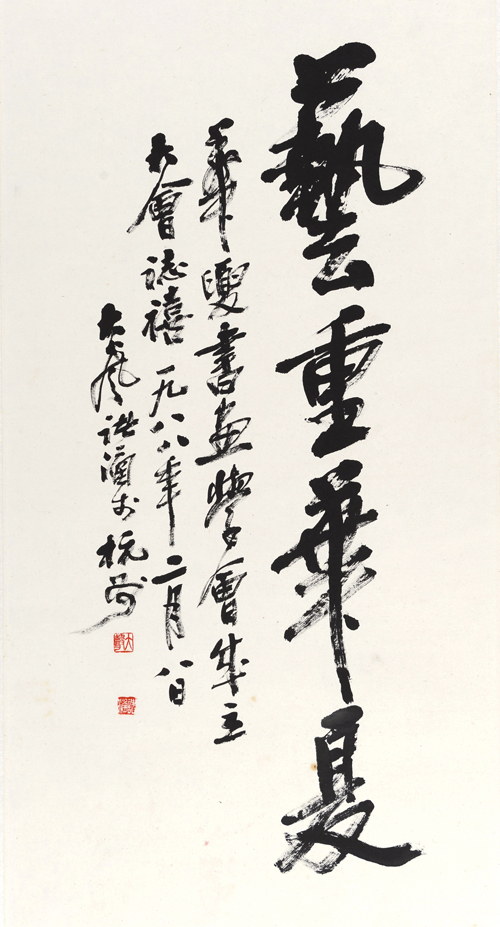 藝重華夏
華夏書画學會成立
大會誌禧一九八八年二月八日
大風 於杭